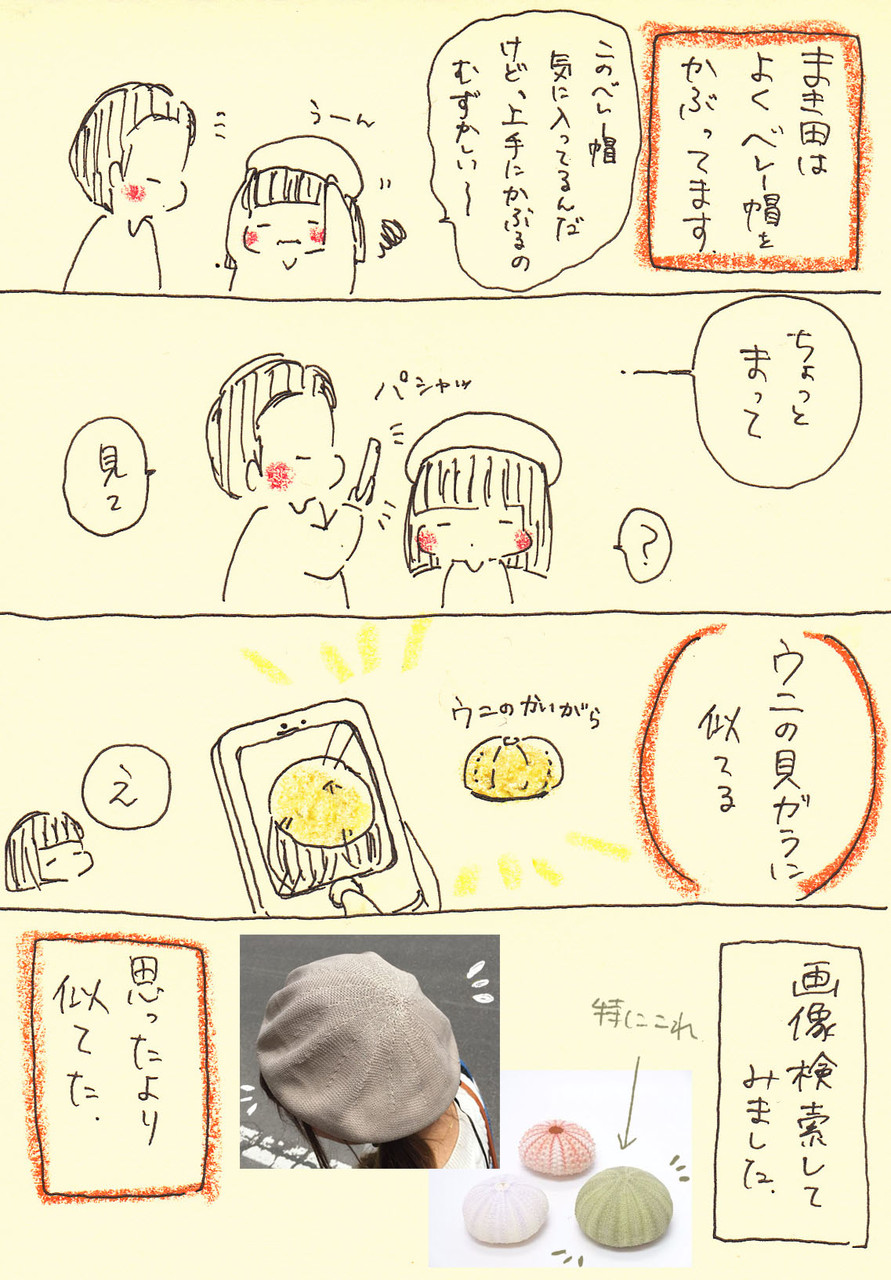 まき田は
よくベレー帽を
かぶってます.
このベレー帽
気に入ってるんだ
けど、上手にかぶるの
むずかしい〜
うーん
ちょっと
まって
?
パシャッ
見て
ウニの貝ガラに
似てる
ウニのかいがら
え
画像検索して
みました.
特にこれ
思ったより
似てた.